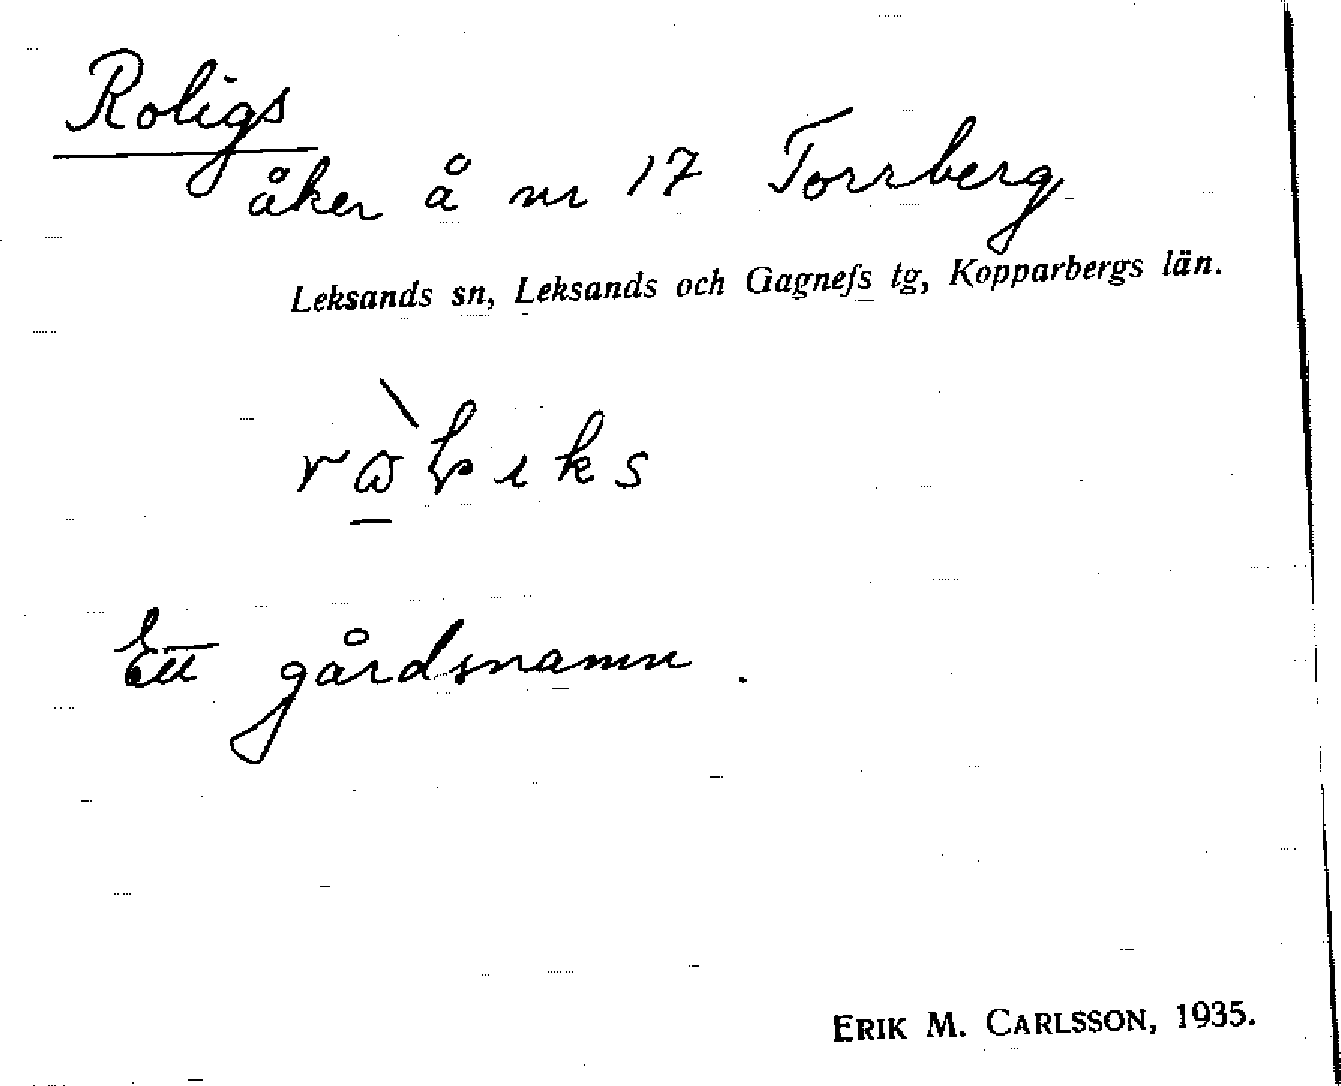 Roligs
åker å nr 17 Torrberg
Leksands sn, Leksands och Gagneſs tg, Kopparbergs län.
Ett gårdsnamn.
ERIK M. CARLSSON, 1935.